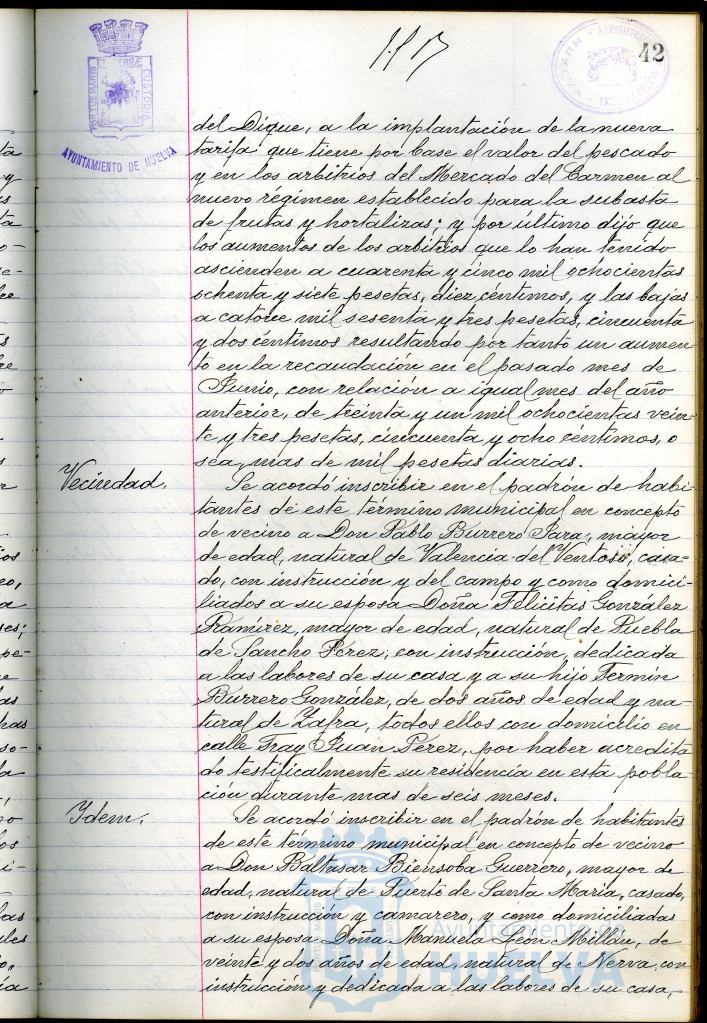 42
AYUNTAMIENTO DE HUELVA
del Dique, a la implantación de la nueva
tarifa que tiene por base el valor del pescado
y en los arbitrios del Mercado del Carmen al
nuevo régimen establecido para la subasta
de frutas y hortalizas; y por último dijo que
los aumentos de los arbitrios que lo han tenido
ascienden a cuarenta y cinco mil ochocientas
ochenta y siete pesetas, diez céntimos, y las bajas
a catorce mil sesenta y tres pesetas, cincuenta
y dos céntimos resultando por tanto un aumen-
to en la recaudación en el pasado mes de
Junio, con relación a igual mes del año
anterior, de treinta y un mil ochocientas vein-
te y tres pesetas, cincuenta y ocho céntimos, o
sea, mas de mil pesetas diarias.
Vecindad.
Se acordó inscribir en el padrón de habi-
tantes de este término municipal en concepto
de vecino a Don Pablo Burrero Jara, mayor
de edad, natural de Valencia del Ventoso, casa-
do, con instrucción y del campo y como domici-
liados a su esposa Doña Felicitas González
Ramírez, mayor de edad, natural de Puebla
de Sancho Pérez, con instrucción, dedicada
a las labores de su casa y a su hijo Fermín
Burrero González, de dos años de edad y na-
tural de Zafra, todos ellos con domicilio en
calle Fray Juan Pérez, por haber acredita
do testificalmente su residencia en esta pobla-
ción durante mas de seis meses.
Idem.
Se acordó inscribir en el padrón de habitantes
de este término municipal en concepto de vecino
a Don Baltasar Biensoba Guerrero, mayor de
edad, natural de Puerto de Santa María, casado,
con instrucción y camarero, y como domiciliadas
a su esposa Doña Manuela León Millán, de
veinte y dos años de edad, natural de Nerva, con
instrucción y dedicada a las labores de su casa,
Ayuntamiento de
HUELVA